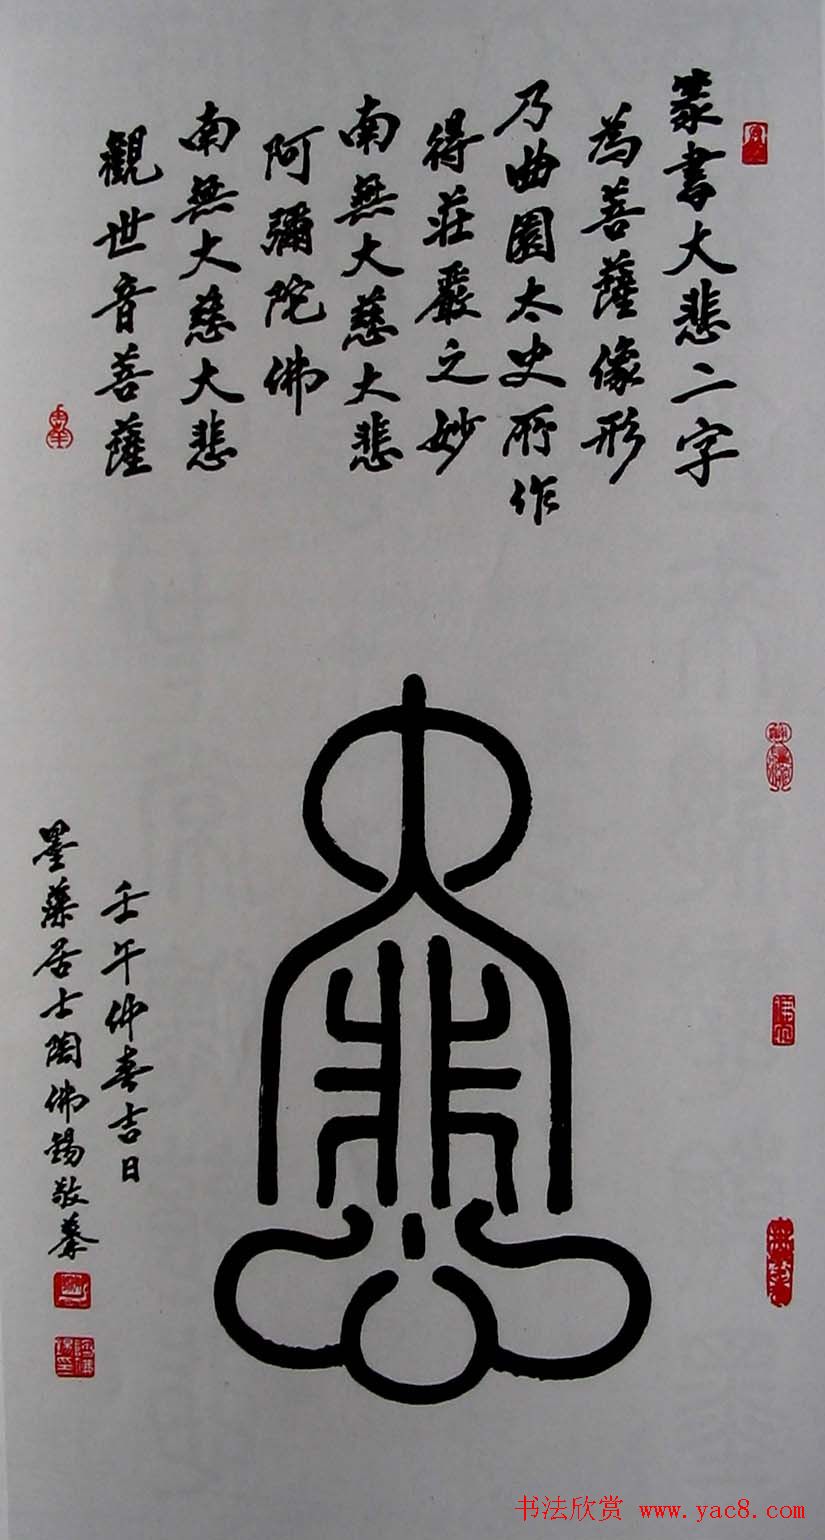 篆書大悲二字
為菩薩像形
乃曲園太史所作
得莊嚴之妙
南無大慈大悲
阿彌陀佛
南無大慈大悲
觀世音菩薩
大悲
壬午佛喜吉日
墨藥居士陶佛錫敬摹
书法欣赏 www.yac8.com